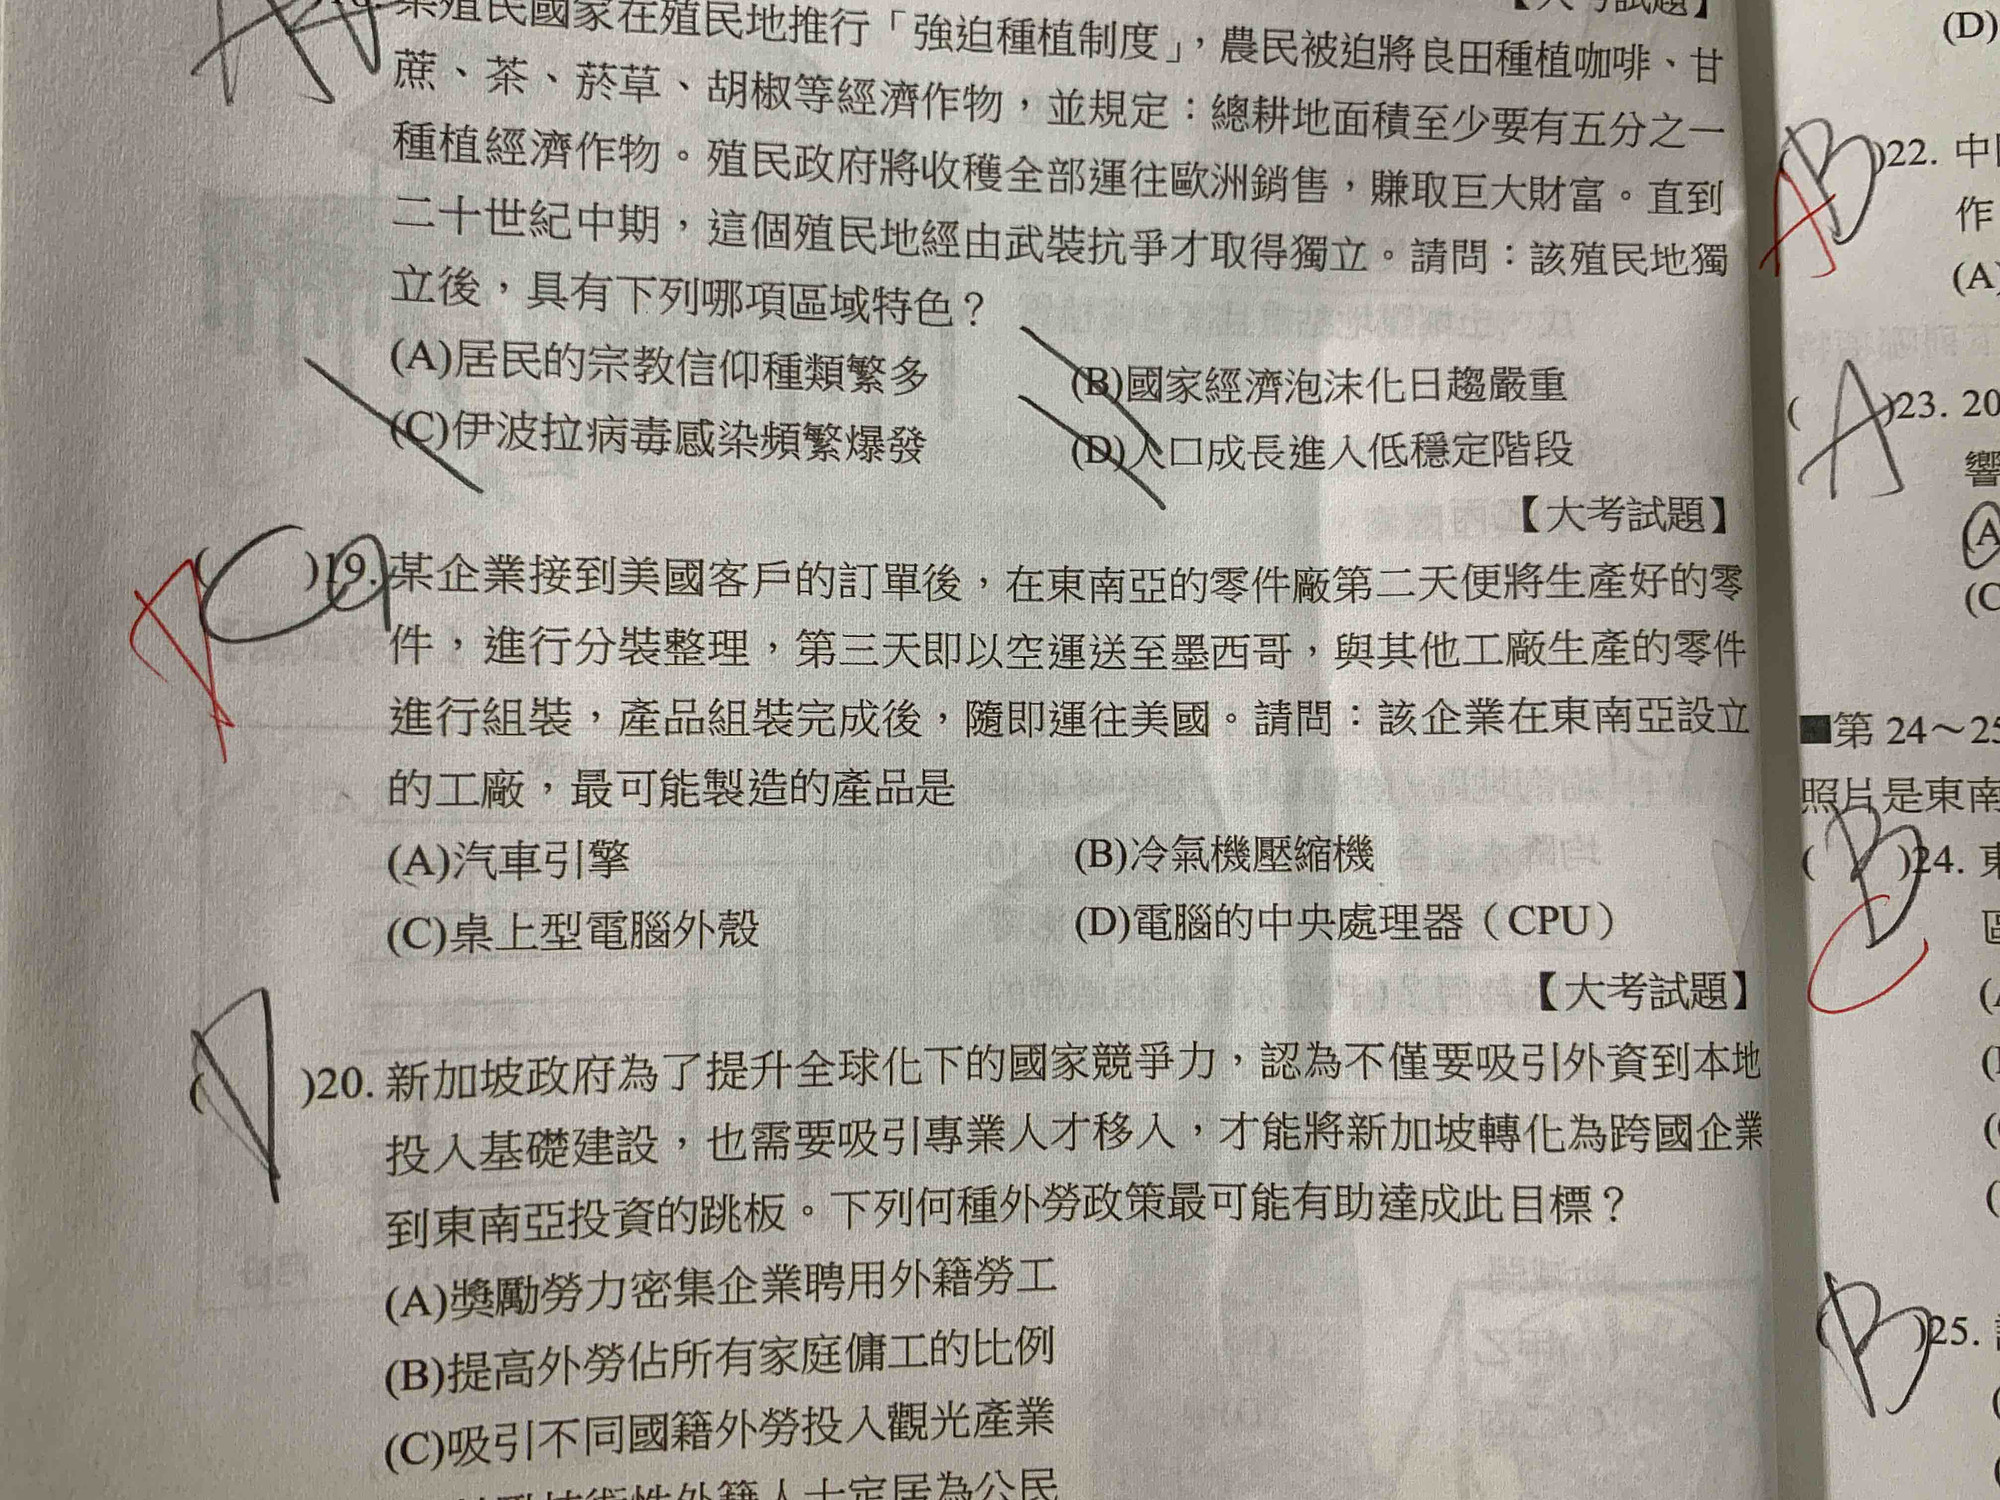 某殖民國家在殖民地推行「強迫種植制度」，農民被迫將良田種植咖啡、甘
蔗、茶、菸草、胡椒等經濟作物，並規定：總耕地面積至少要有五分之一
種植經濟作物。殖民政府將收穫全部運往歐洲銷售，賺取巨大財富。直到
二十世紀中期，這個殖民地經由武裝抗爭才取得獨立。請問：該殖民地獨
立後，具有下列哪項區域特色？
(A)居民的宗教信仰種類繁多 (B)國家經濟泡沫化日趨嚴重
(C)伊波拉病毒感染頻繁爆發 (D)人口成長進入低穩定階段
【大考試題】
( C )19. 某企業接到美國客戶的訂單後，在東南亞的零件廠第二天便將生產好的零
件，進行分裝整理，第三天即以空運送至墨西哥，與其他工廠生產的零件
進行組裝，產品組裝完成後，隨即運往美國。請問：該企業在東南亞設立
的工廠，最可能製造的產品是
(A)汽車引擎 (B)冷氣機壓縮機
(C)桌上型電腦外殼 (D)電腦的中央處理器（CPU）
【大考試題】
( D )20. 新加坡政府為了提升全球化下的國家競爭力，認為不僅要吸引外資到本地
投入基礎建設，也需要吸引專業人才移入，才能將新加坡轉化為跨國企業
到東南亞投資的跳板。下列何種外勞政策最可能有助達成此目標？
(A)獎勵勞力密集企業聘用外籍勞工
(B)提高外勞佔所有家庭傭工的比例
(C)吸引不同國籍外勞投入觀光產業
技術性外籍人士定居為公民
(D)
B )22. 中
A
作
(A)
( A )23. 20
響
(A
(C
■第 24～25
照片是東南
( B )24. 東
C
( B )25.